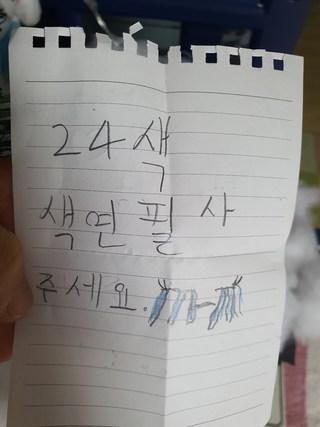 24색
색연필 사
주세요.